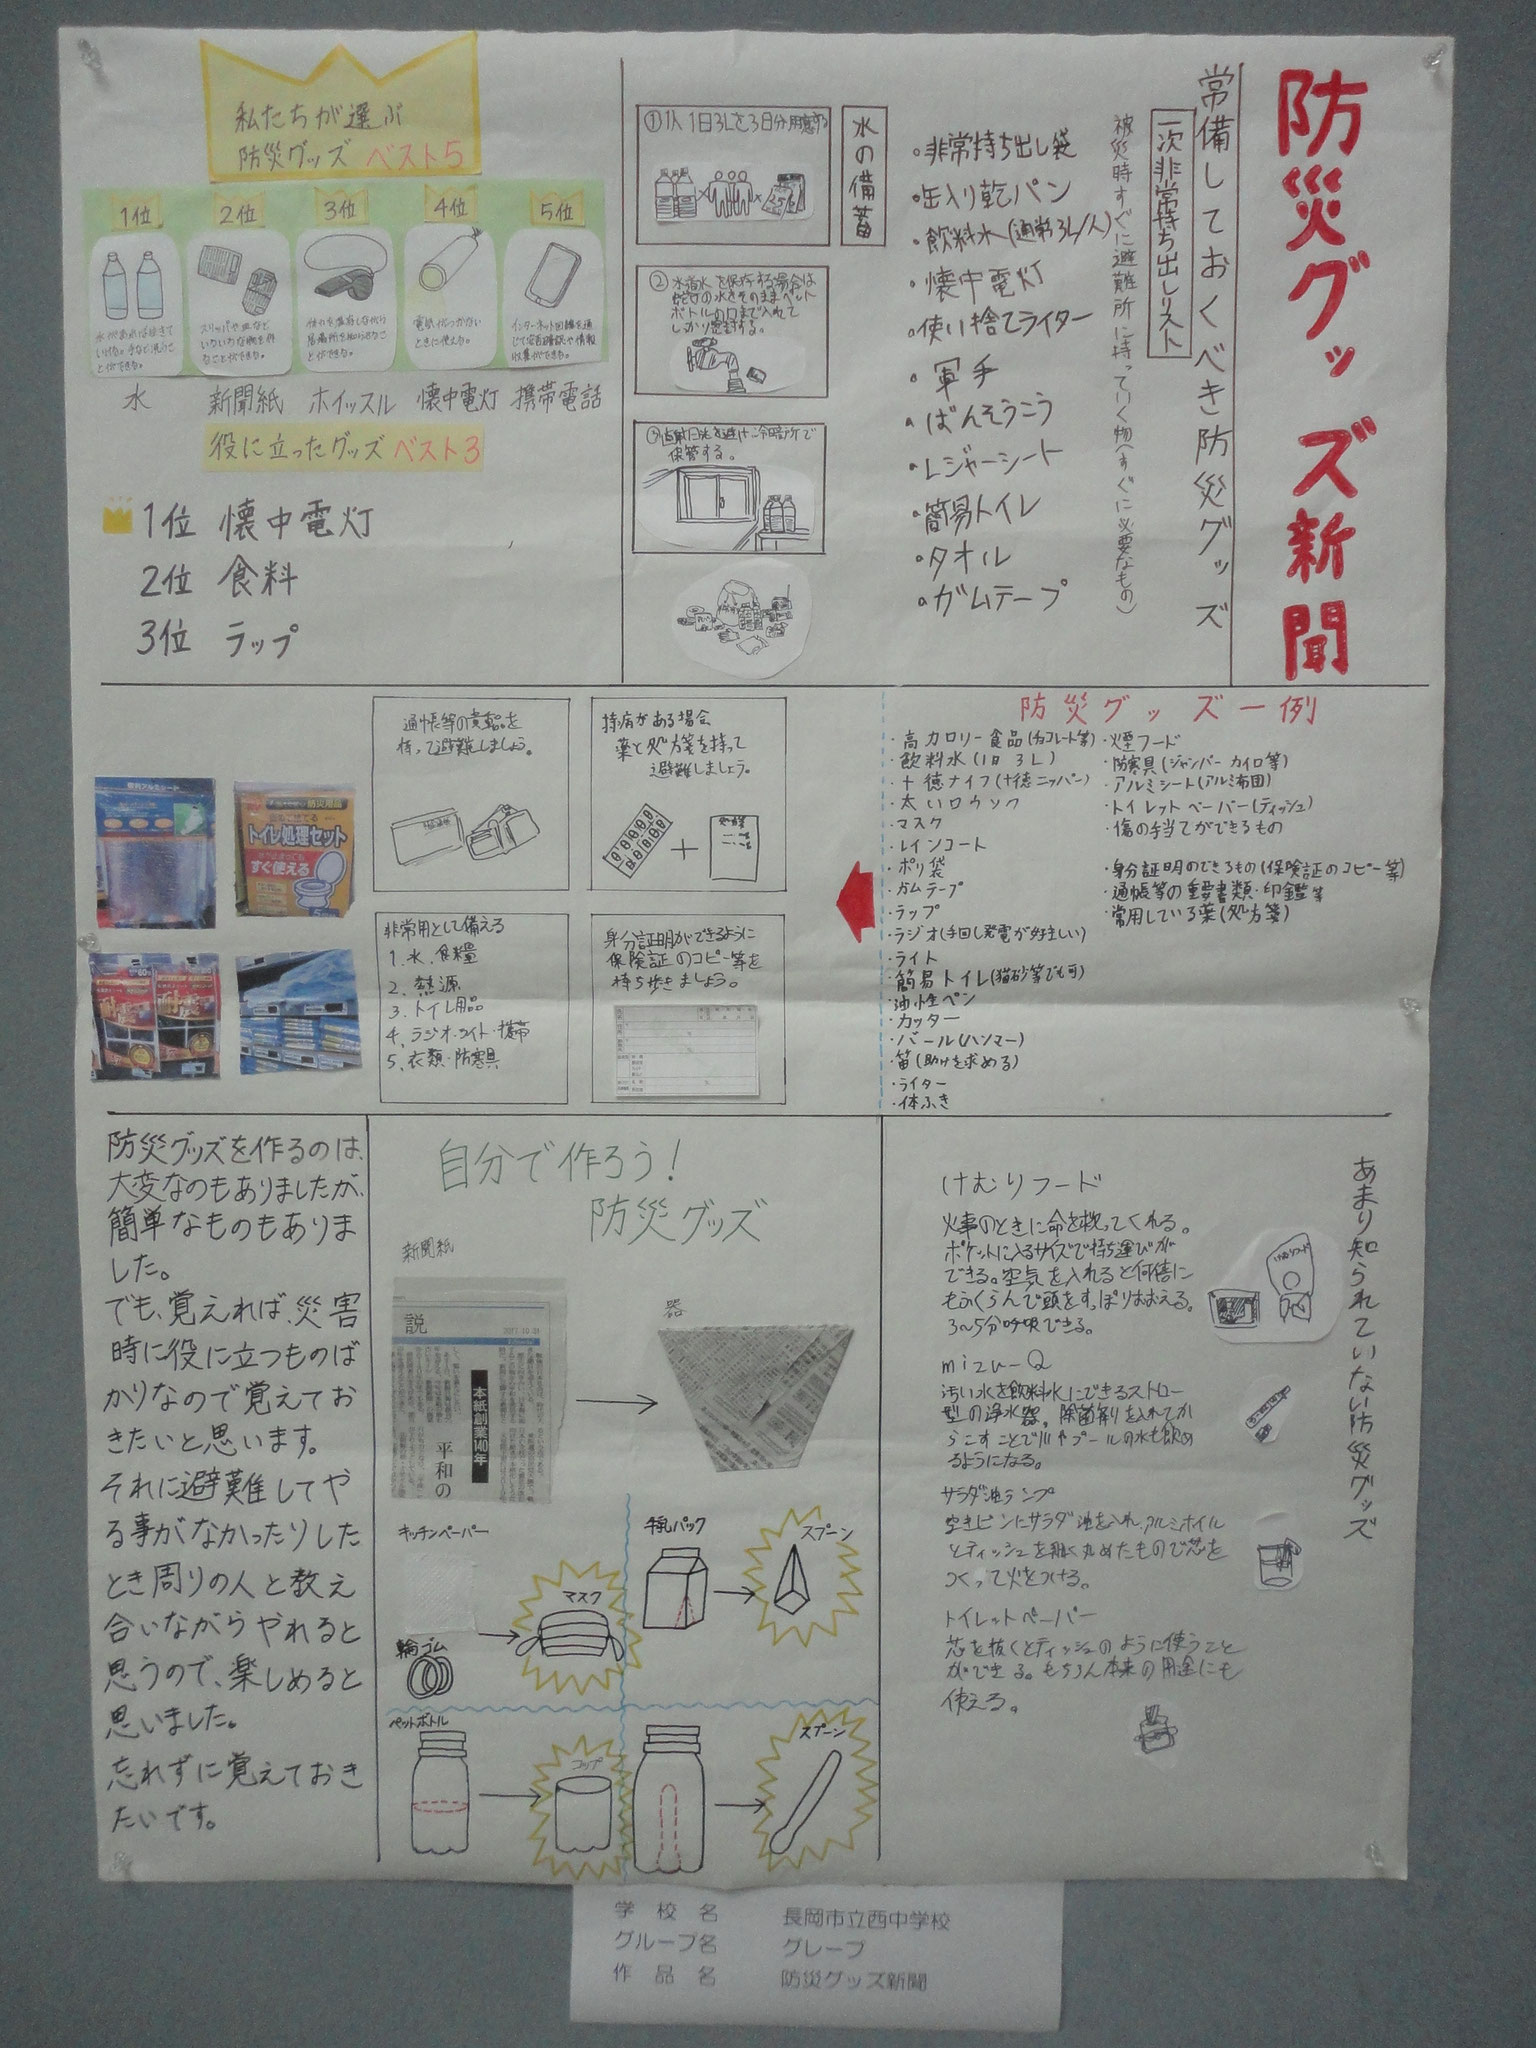 防災グッズ新聞
常備しておくべき防災グッズ
一次非常持ち出しリスト
被災時すぐに避難所に持っていく物(すぐに必要なもの)
・非常持ち出し袋
・缶入り乾パン
・飲料水(通常3L/人)
・懐中電灯
・使い捨てライター
・軍手
・ばんそうこう
・レジャーシート
・簡易トイレ
・タオル
・ガムテープ
水の備蓄
①1人1日3Lを3日分用意する
②水道水を保存する場合は
蛇口の水をそのままペット
ボトルの口まで入れて
しっかり密封する。
③直射日光を避け冷暗所で
保管する。
私たちが選ぶ
防災グッズ ベスト5
1位
2位
3位
4位
5位
水があれば生きて
いける。手など洗うこ
とができる。
スリッパや皿など
いろいろな物を作る
ことができる。
体力を温存しながら
居場所を知らせるこ
とができる。
電気がつかない
ときに使える。
インターネット回線を通
じて安否確認や情報
収集ができる。
水
新聞紙
ホイッスル
懐中電灯
携帯電話
役に立ったグッズ ベスト3
1位 懐中電灯
2位 食料
3位 ラップ
防災グッズ一例
・高カロリー食品(チョコレート等)
・飲料水(1日3L)
・十徳ナイフ(十徳ニッパー)
・太いロウソク
・マスク
・レインコート
・ポリ袋
・ガムテープ
・ラップ
・ラジオ(手回し発電が好ましい)
・ライト
・簡易トイレ(猫砂等でも可)
・油性ペン
・カッター
・バール(ハンマー)
・笛(助けを求める)
・ライター
・体ふき
・煙フード
・防寒具(ジャンパー カイロ等)
・アルミシート(アルミ布団)
・トイレットペーパー(ティッシュ)
・傷の手当てができるもの
・身分証明のできるもの(保険証のコピー等)
・通帳等の重要書類・印鑑等
・常用している薬(処方箋)
持病がある場合
薬と処方箋を持って
避難しましょう。
処方箋
通帳等の貴重品を
持って避難しましょう。
身分証明ができるように
保険証のコピー等を
持ち歩きましょう。
非常用として備える
1、水・食糧
2、熱源
3、トイレ用品
4、ラジオ・ライト・携帯
5、衣類・防寒具
防災用品
トイレ処理セット
すぐ使える
あまり知られていない防災グッズ
けむりフード
火事のときに命を救ってくれる。
ポケットに入るサイズで持ち運びが
できる。空気を入れると何倍に
もふくらんで頭をすっぽりおおえる。
3〜5分呼吸できる。
mizu-Q
汚い水を飲料水にできるストロー
型の浄水器。除菌剤を入れてか
らこすことで川やプールの水も飲め
るようになる。
サラダ油ランプ
空きビンにサラダ油を入れ、アルミホイル
とティッシュを細く丸めたもので芯を
つくって火をつける。
トイレットペーパー
芯を抜くとティッシュのように使うこと
ができる。もちろん本来の用途にも
使える。
自分で作ろう!
防災グッズ
新聞紙
説
本紙創業140年
平和の
器
キッチンペーパー
輪ゴム
マスク
牛乳パック
スプーン
ペットボトル
コップ
スプーン
防災グッズを作るのは、
大変なのもありましたが、
簡単なものもありま
した。
でも、覚えれば、災害
時に役に立つものば
かりなので覚えてお
きたいと思います。
それに避難してや
る事がなかったりした
とき周りの人と教え
合いながらやれると
思うので、楽しめると
思いました。
忘れずに覚えておき
たいです。
学校名 長岡市立西中学校
グループ名 グレープ
作品名 防災グッズ新聞